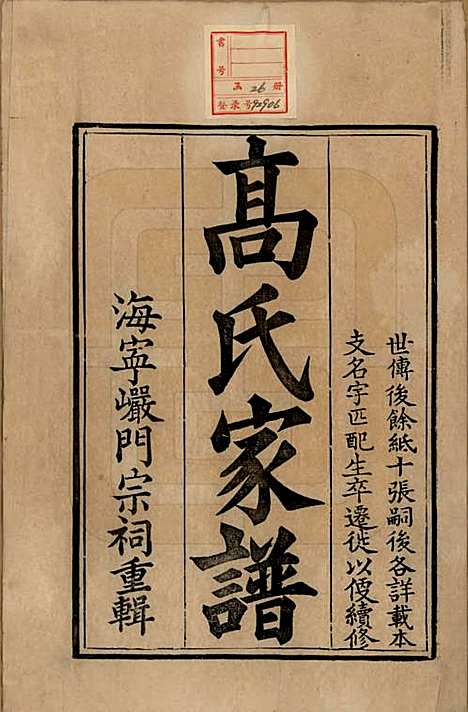 書號
函 26 册
登录号 92906
世傳後餘紙十張嗣後各詳載本
支名字匹配生卒遷徙以便續修
髙氏家譜
海寕巖門宗祠重輯